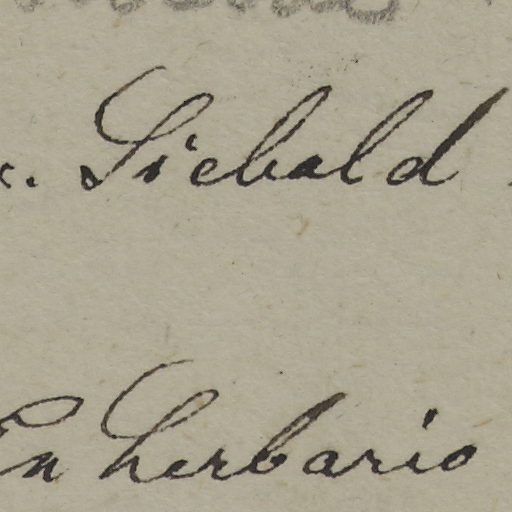 . Siebald
En herbario